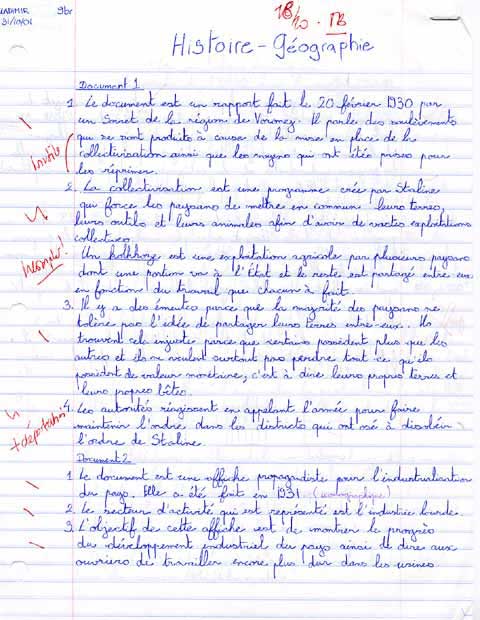 VLADIMIR 9br
31/10/01
18/20. TB
Histoire - Géographie
Document 1
1. Le document est un rapport fait le 20 février 1930 par
un Soviet de la région de Voronej. Il parle des soulèvements
qui se sont produits à cause de la mise en place de la
Inutile collectivisation ainsi que les moyens qui ont étés prises pour
les réprimer.
2. La collectivisation est une programme crée par Staline
qui force les paysans de mettre en commun leurs terres,
leurs outils et leurs animales afin d'avoir de vastes exploitations
collectives.
Incomplet! Un kolkhoze est une exploitation agricole par plusieurs paysans
dont une portion va à l'État et le reste est partagé entre eux
en fonction du travail que chacun à fait.
3. Il y a des émeutes parce que la majorité des paysans ne
tolère pas l'idée de partager leurs terres entre eux. Ils
trouvent cela injuste parce que certains possèdent plus que les
autres et ils ne veulent surtout pas perdre tout ce qu'ils
possèdent de valeur monétaire, c'est à dire leurs propres terres et
leurs propres bêtes.
4. Les autorités réagissent en appelant l'armée pour faire
+ déportation! maintenir l'ordre dans les districts qui ont osé à désobéir
l'ordre de Staline.
Document 2
1. Le document est une affiche propagandiste pour l'industrialisation
du pays. Elle a été fait en 1931
2. Le secteur d'activité qui est représenté est l'industrie lourde.
3. L'objectif de cette affiche est de montrer le progrès
du développement industriel du pays ainsi de dire aux
ouvriers de travailler encore plus dur dans les usines.